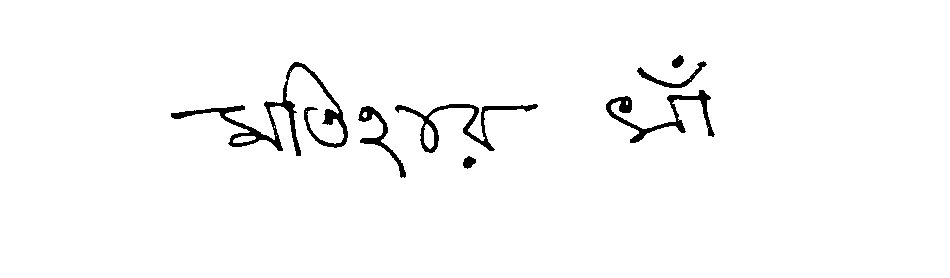 মতিহার খাঁ